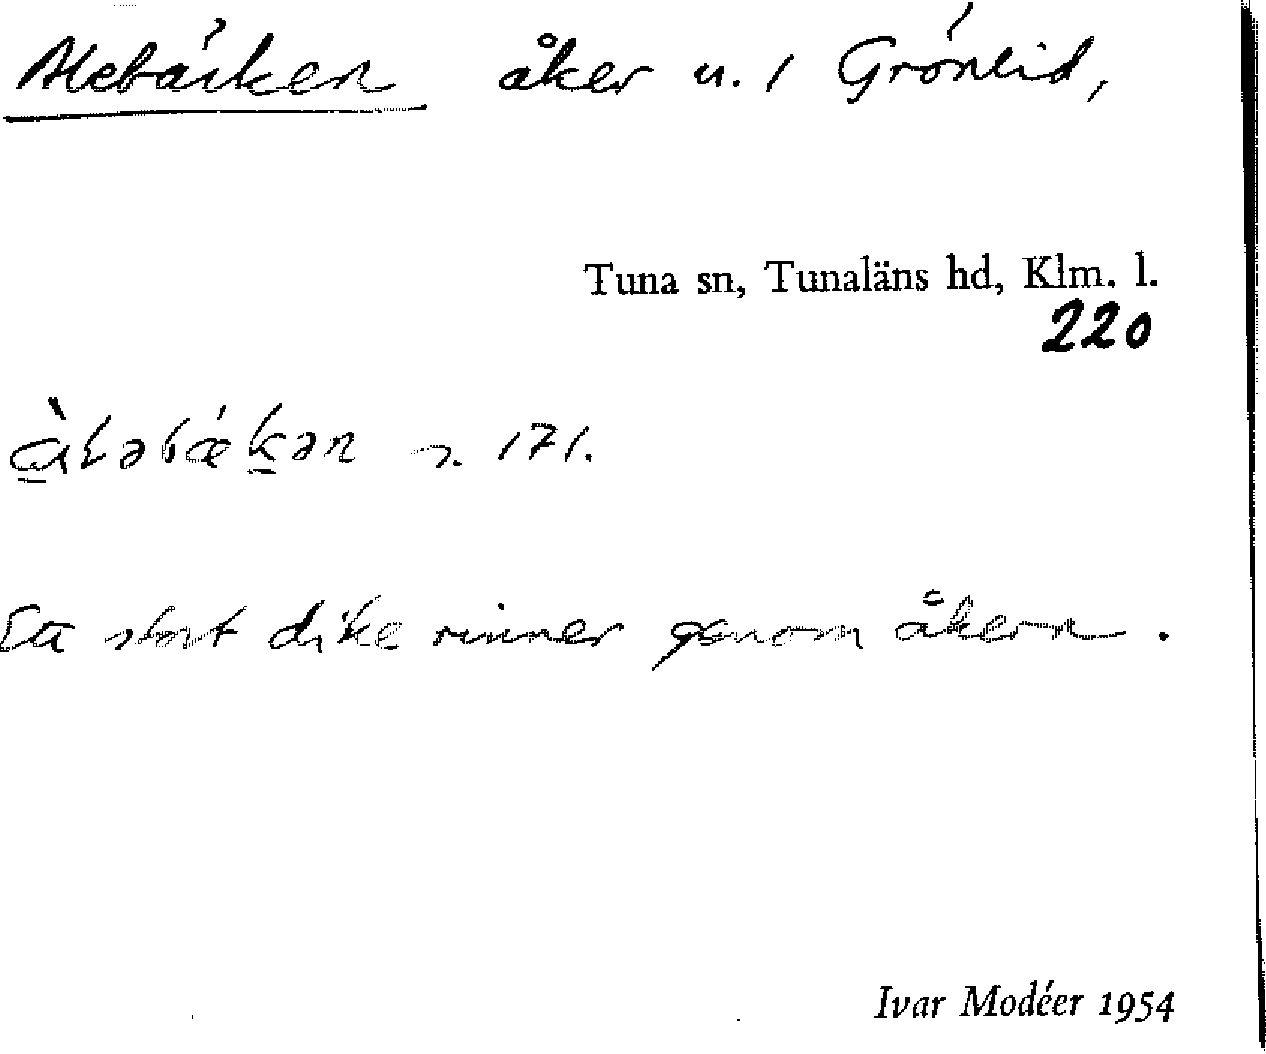 Alebäcken åker u. / Grönlid,
Tuna sn, Tunaläns hd, Klm. l.
220
171.
Ett stort dike rinner genom åkern.
Ivar Modéer 1954